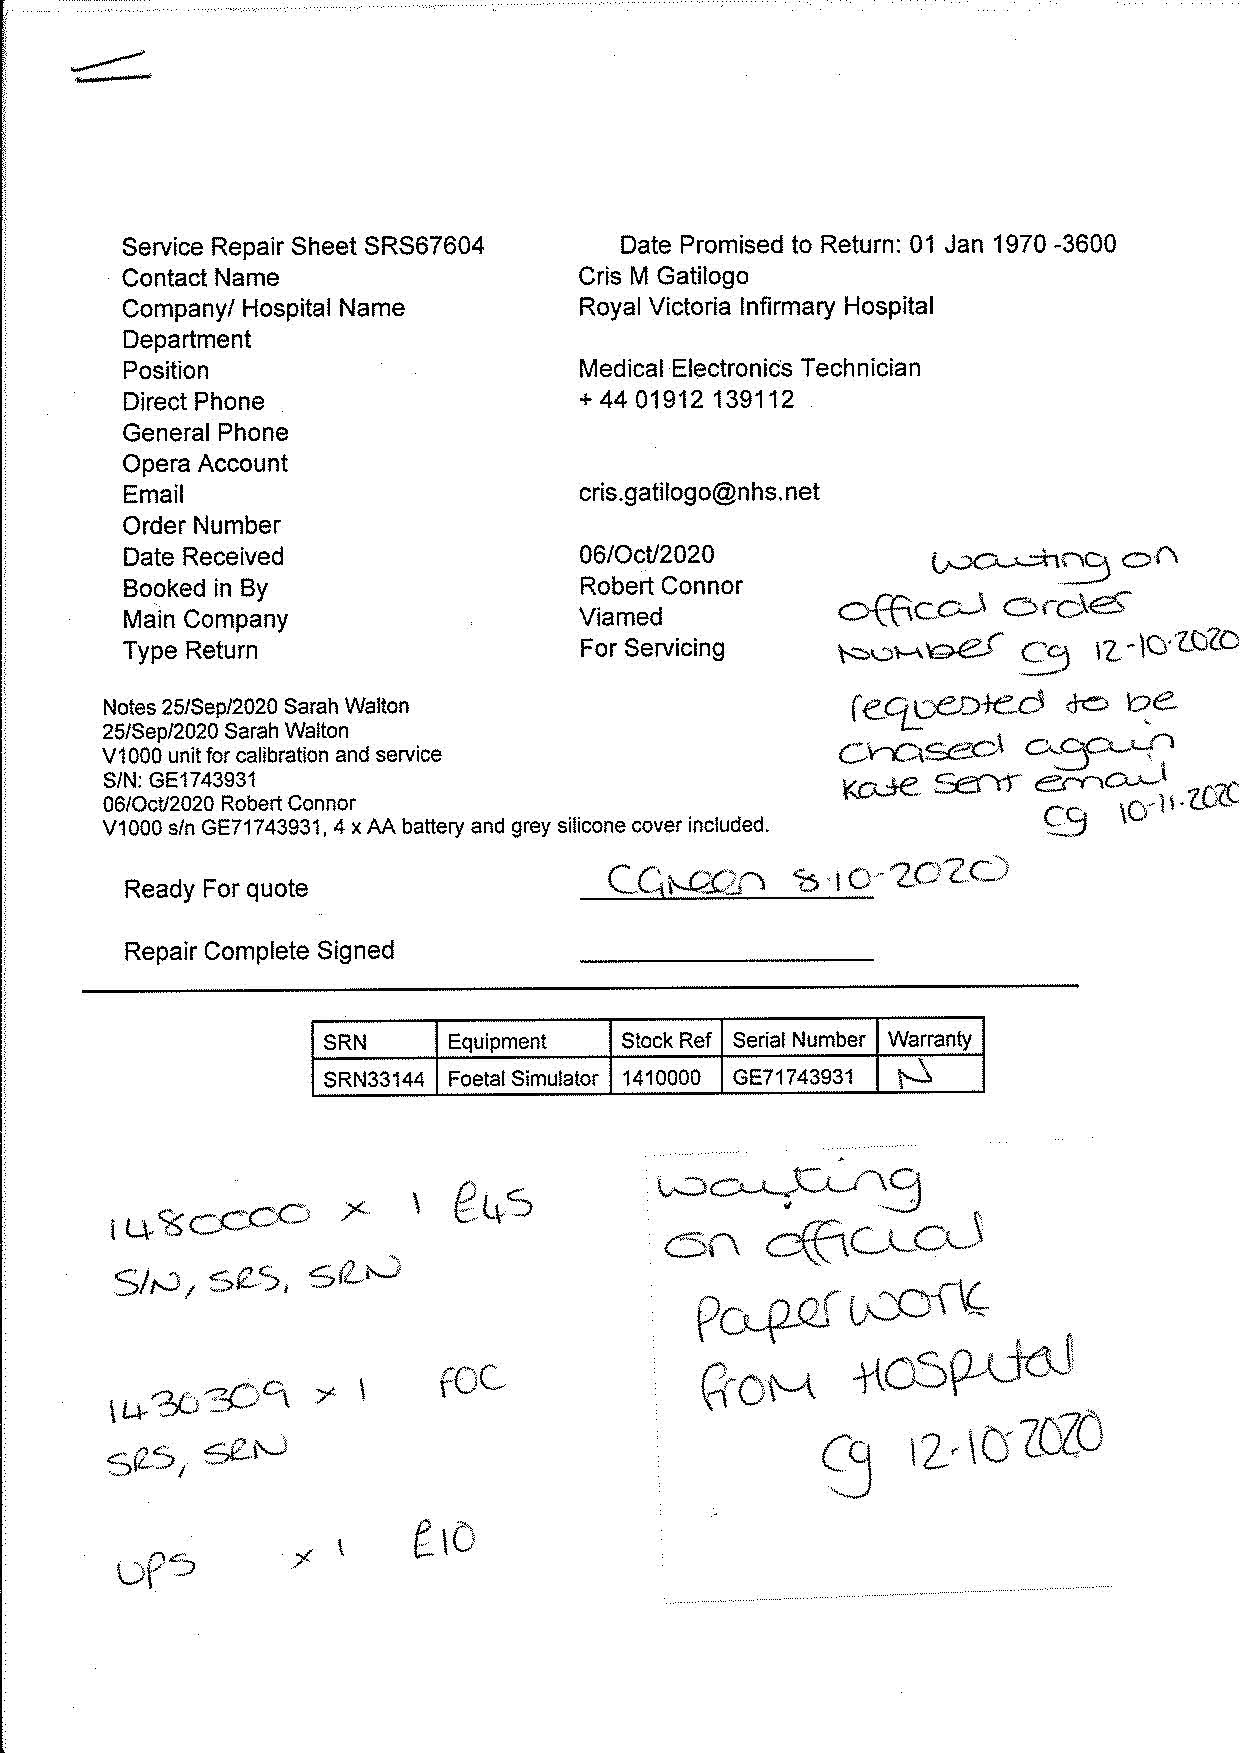 Service Repair Sheet SRS67604 Date Promised to Return: 01 Jan 1970 -3600
Contact Name Cris M Gatilogo
Company/ Hospital Name Royal Victoria Infirmary Hospital
Department
Position Medical Electronics Technician
Direct Phone + 44 01912 139112
General Phone
Opera Account
Email cris.gatilogo@nhs.net
Order Number
Date Received 06/Oct/2020
Booked in By Robert Connor
Main Company Viamed
Type Return For Servicing
waiting on
offical order
Number Cg 12-10-2020
requested to be
chased again
Kate sent email
Cg 10-11-2020
Notes 25/Sep/2020 Sarah Walton
25/Sep/2020 Sarah Walton
V1000 unit for calibration and service
S/N: GE1743931
06/Oct/2020 Robert Connor
V1000 s/n GE71743931, 4 x AA battery and grey silicone cover included.
Ready For quote CGreen 8-10-2020
Repair Complete Signed
SRN Equipment Stock Ref Serial Number Warranty
SRN33144 Foetal Simulator 1410000 GE71743931 N
1480000 x 1 £45
S/N, SRS, SRN
1430309 x 1 FOC
SRS, SRN
UPS x 1 £10
waiting
on official
Paperwork
from Hospital
Cg 12-10-2020